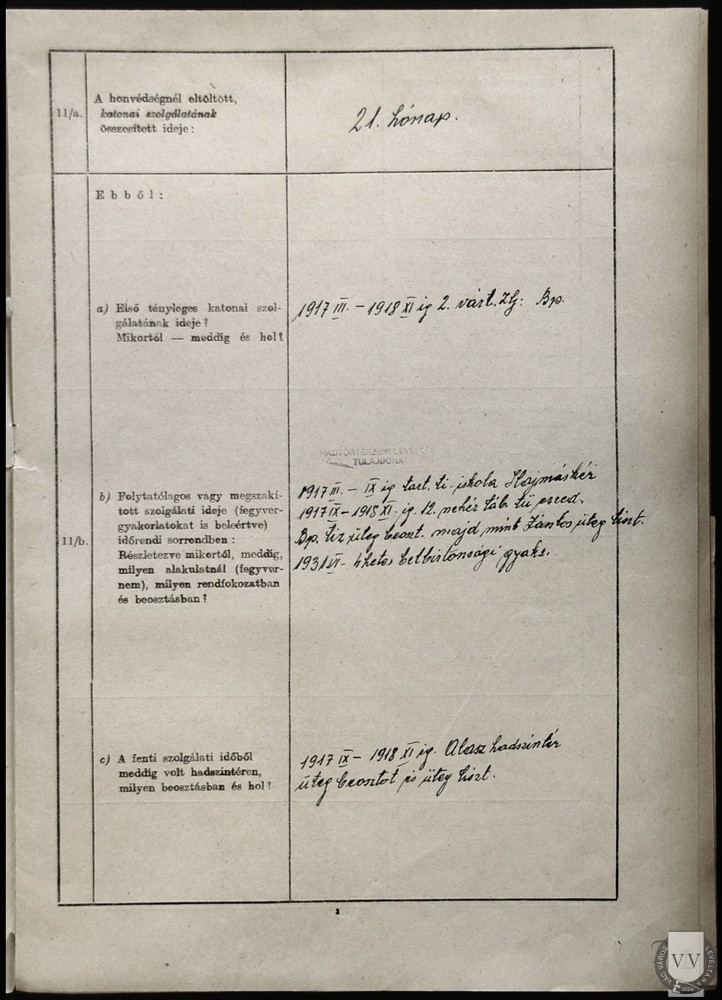 11/a.
A honvédségnél eltöltött,
katonai szolgálatának
összesített ideje:
21. hónap.
Ebből:
a) Első tényleges katonai szol-
gálatának ideje?
Mikortól — meddig és hol?
1917 III. – 1918 XI ig 2. várt. Bp.
HADTÖRTÉNELMI LEVÉLTÁR
TULAJDONA
11/b.
b) Folytatólagos vagy megszakí-
tott szolgálati ideje (fegyver-
gyakorlatokat is beleértve)
időrendi sorrendben:
Részletezve mikortól, meddig,
milyen alakulatnál (fegyver-
nem), milyen rendfokozatban
és beosztásban?
1917 III. – IX ig tart. ti. iskola Hajmáskér
1917 IX – 1918 XI. ig. 12. nehéz táb. tü. ezred.
Bp. üteg beoszt. majd mint üteg tiszt.
1931 VI - 4 hetes belbiztonsági gyak.
c) A fenti szolgálati időből
meddig volt hadszíntéren,
milyen beosztásban és hol?
1917 IX – 1918 XI ig. Olasz hadszintér
üteg beosztot és üteg tiszt.
3
VÁC VÁROS LEVÉLTÁRA
VV